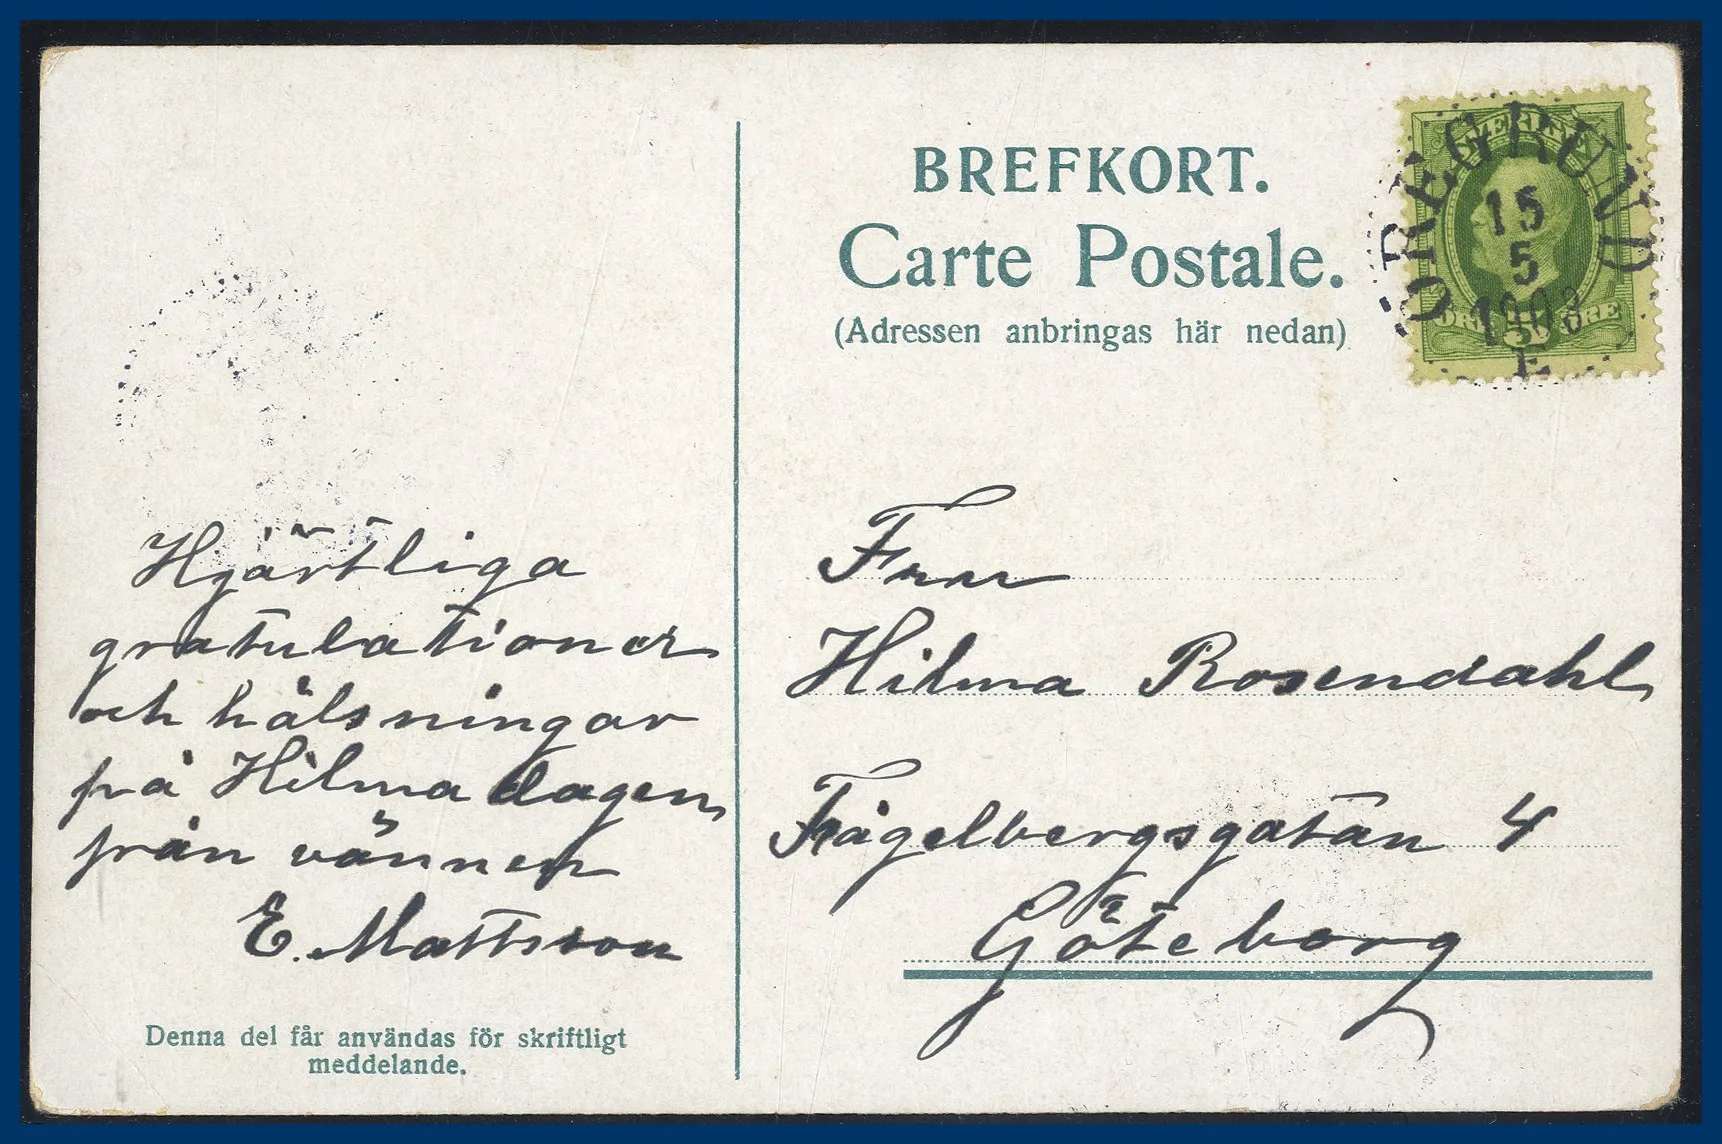 BREFKORT.
Carte Postale.
(Adressen anbringas här nedan)
SVERIGE
ÖREGRUND
15
5
1903
ÖRE 5 ÖRE
Hjärtliga
gratulationer
och hälsningar
på Hilmadagen
från vännen
E. Mattsson
Denna del får användas för skriftligt
meddelande.
Fru
Hilma Rosendahl
Fågelbergsgatan 4
Göteborg